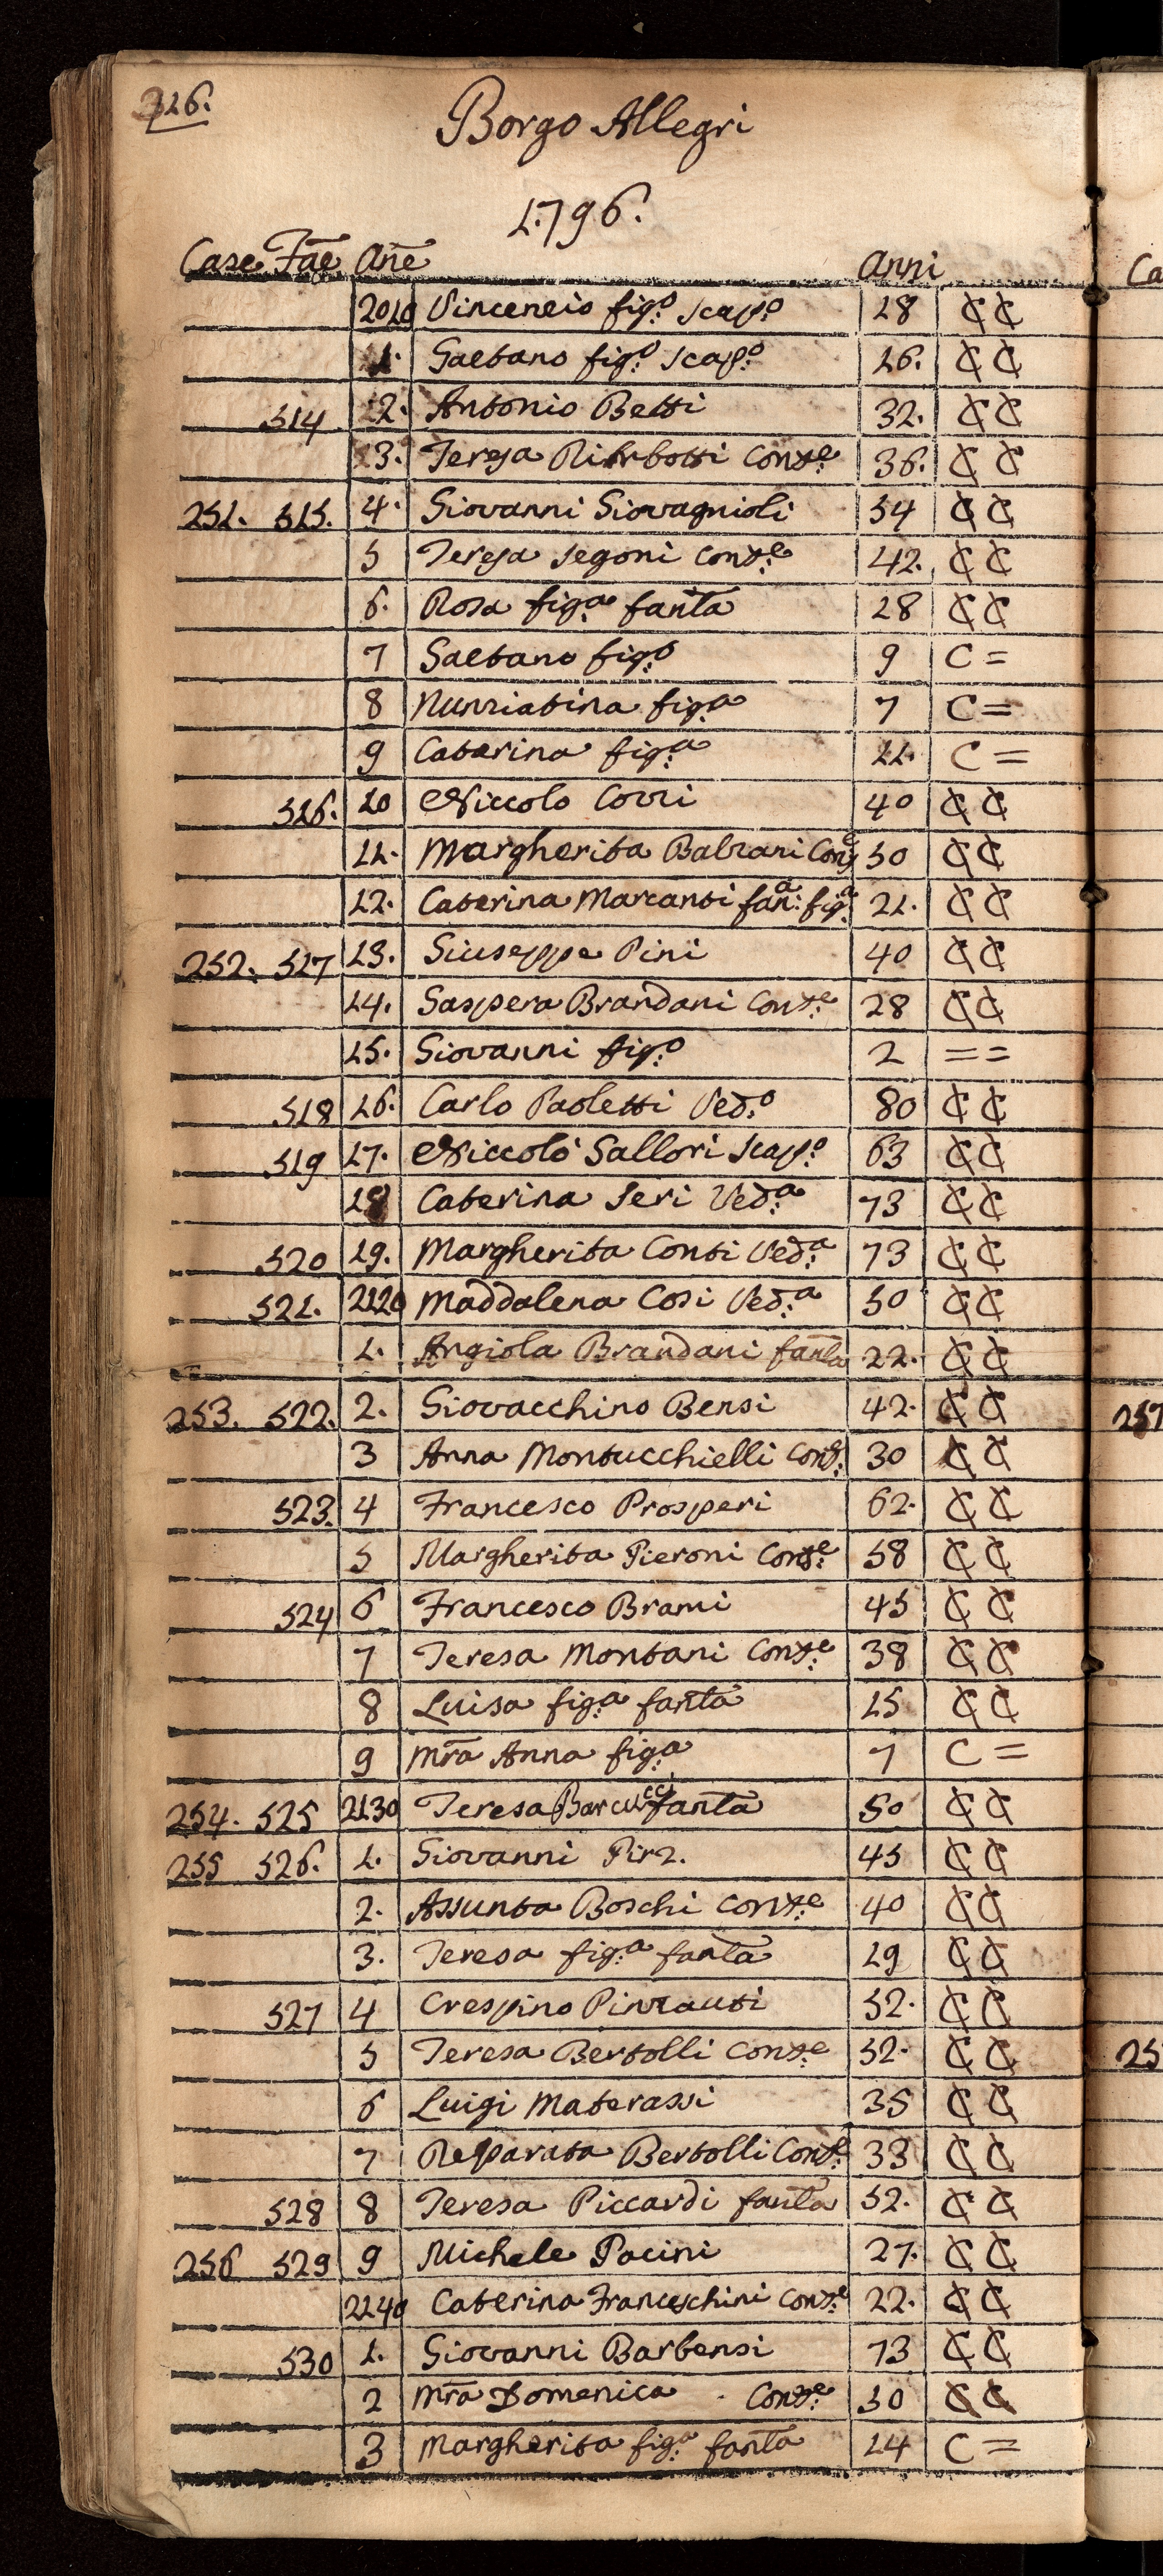 326.
Borgo Allegri
1796.
Case Fae Ane Anni
2010 Vincenzio figo: scapo: 18 C C
1. Gaetano figo: scapo: 16. C C
514 2. Antonio Betti 32. C C
3. Teresa Conse: 36. C C
251. 515. 4. Giovanni Giovagnioli 54 C C
5 Teresa Segoni Conse: 42. C C
6. Rosa figa: fanta 18 C C
7 Gaetano figo: 9 C =
8 Nunziatina figa: 7 C =
9 Caterina figa: 11. C =
516. 10 Niccolo Corri 40 C C
11. Margherita Balzani Conse 50 C C
12. Caterina Marcanti fana: figa: 21. C C
252. 517 13. Giuseppe Pini 40 C C
14. Gaspera Brandani Conse: 28 C C
15. Giovanni figo: 2 = =
518 16. Carlo Paoletti Vedo: 80 C C
519 17. Niccolò Gallori scapo: 63 C C
18 Caterina Seri Veda: 73 C C
520 19. Margherita Conti Veda: 73 C C
521. 2120 Maddalena Cosi Veda: 50 C C
1. Angiola Brandani fanta 22. C C
253. 522. 2. Giovacchino Bensi 42. C C
3 Anna Montucchielli Conse: 30 C C
523. 4 Francesco Prosperi 62. C C
5 Margherita Pieroni Conse: 58 C C
524 6 Francesco Brami 45 C C
7 Teresa Montani Conse: 38 C C
8 Luisa figa: fanta 15 C C
9 Mra Anna figa: 7 C =
254. 525 2130 Teresa Barcucci fanta 50 C C
255 526. 1. Giovanni Pirz. 45 C C
2. Assunta Boschi Conse: 40 C C
3. Teresa figa: fanta 19 C C
527 4 Crespino Pinzauti 52. C C
5 Teresa Bertolli Conse: 52. C C
6 Luigi Materassi 35 C C
7 Reparata Bertolli Conse: 33 C C
528 8 Teresa Piccardi fanta 52. C C
256 529 9 Michele Pacini 27. C C
2140 Caterina Franceschini Conse: 22. C C
530 1. Giovanni Barbensi 73 C C
2 Mra Domenica Conse: 50 C C
3 Margherita figa: fanta 14 C =